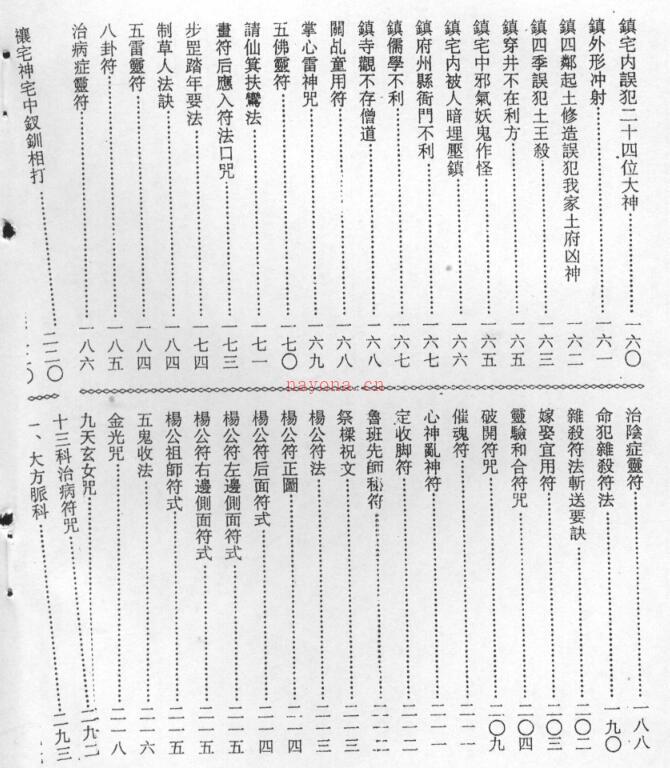 鎮宅内誤犯二十四位大神……一六〇
鎮外形冲射……一六一
鎮四鄰起土修造誤犯我家土府凶神……一六二
鎮四季誤犯土王殺……一六三
鎮穿井不在利方……一六五
鎮宅中邪氣妖鬼作怪……一六五
鎮宅内被人暗埋壓鎮……一六六
鎮府州縣衙門不利……一六七
鎮儒學不利……一六七
鎮寺觀不存僧道……一六八
關乩童用符……一六八
掌心雷神咒……一六九
五佛靈符……一七〇
請仙箕扶鸞法……一七一
畫符后應入符法口咒……一七三
步罡踏年要法……一七四
制草人法訣……一八四
五雷靈符……一八四
八卦符……一八五
治病症靈符……一八六
讓宅神宅中釵釧相打……二二〇
治陰症靈符……一八八
命犯雜殺符法……一九〇
雜殺符法斬送要訣……二〇二
嫁娶宜用符……二〇三
靈驗和合符咒……二〇四
破開符咒……二〇九
催魂符……二一一
心神亂神符……二一一
定收脚符……二一二
魯班先師秘符……二一二
祭樑祝文……二一三
楊公符法……二一三
楊公符正圖……二一四
楊公符后面符式……二一四
楊公符左邊側面符式……二一五
楊公符右邊側面符式……二一五
楊公祖師符式……二一五
五鬼收法……二一六
金光咒……二一八
九天玄女咒……
十三科治病符咒……二九二
一、大方脈科……二九三
nayona.cn